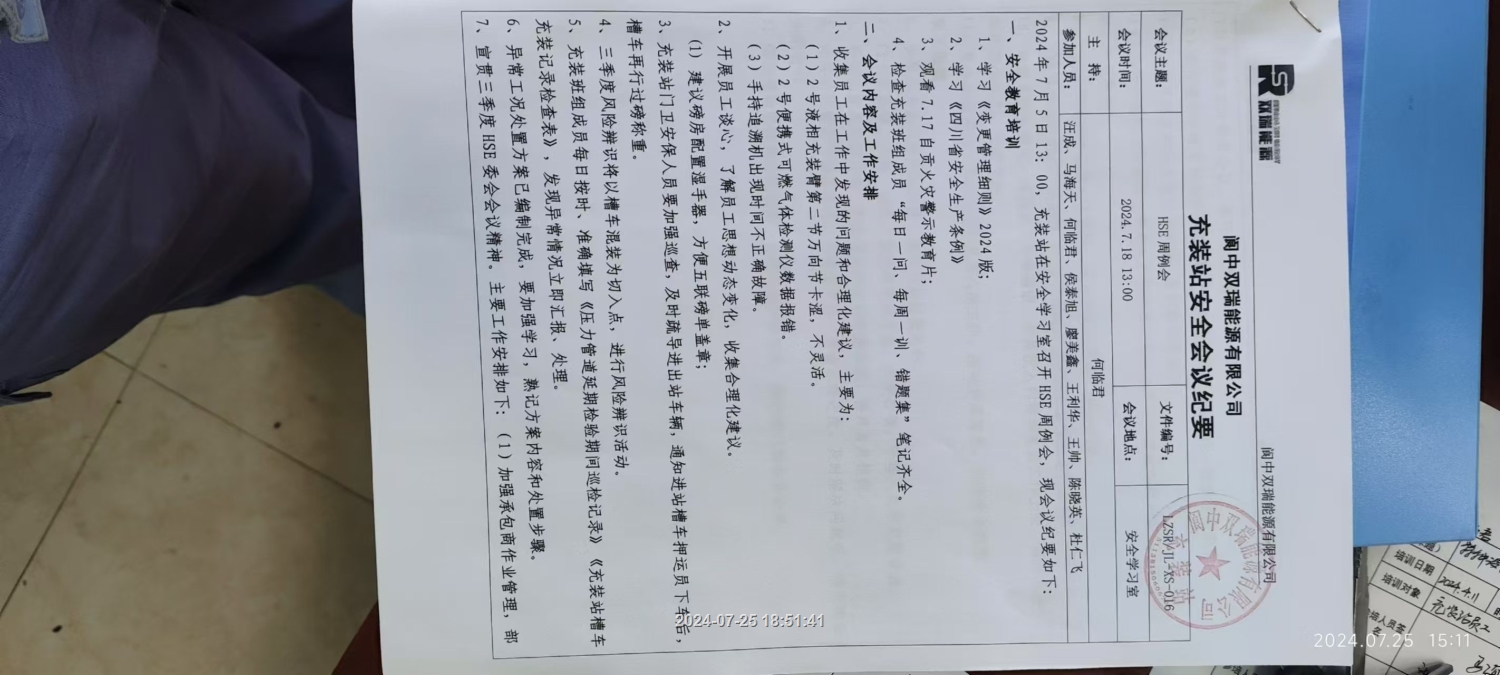 双瑞能源
阆中双瑞能源有限公司
阆中双瑞能源有限公司
充装站安全会议纪要
会议主题： HSE 周例会 文件编号： LZSR/JL-XS-016
会议时间： 2024.7.18 13:00 会议地点： 安全学习室
主 持： 何临君
参加人员： 汪成、马海天、何临君、侯泰旭、廖美鑫、王利华、王帅、陈晓英、杜仁飞
2024 年 7 月 5 日 13：00，充装站在安全学习室召开 HSE 周例会，现会议纪要如下：
一、安全教育培训
1、学习《变更管理细则》2024 版；
2、学习《四川省安全生产条例》
3、观看 7.17 自贡火灾警示教育片；
4、检查充装班组成员“每日一问、每周一训、错题集”笔记齐全。
二、会议内容及工作安排
1、收集员工在工作中发现的问题和合理化建议，主要为：
（1）2 号液相充装臂第二节万向节卡涩，不灵活。
（2）2 号便携式可燃气体检测仪数据报错。
（3）手持追溯机出现时间不正确故障。
2、开展员工谈心，了解员工思想动态变化，收集合理化建议。
（1）建议磅房配置湿手器，方便五联磅单盖章；
3、充装站门卫安保人员要加强巡查，及时疏导进出站车辆，通知进站槽车押运员下车后，
槽车再行过磅称重。
4、三季度风险辨识将以槽车混装为切入点，进行风险辨识活动。
5、充装班组成员每日按时、准确填写《压力管道延期检验期间巡检记录》《充装站槽车
充装记录检查表》，发现异常情况立即汇报、处理。
6、异常工况处置方案已编制完成，要加强学习，熟记方案内容和处置步骤。
7、宣贯三季度 HSE 委会会议精神。主要工作安排如下：（1）加强承包商作业管理，部
阆中双瑞能源有限公司
充装站
培训日期 2024.4.11
培训对象
2024-07-25 18:51:41
2024.07.25 15:11